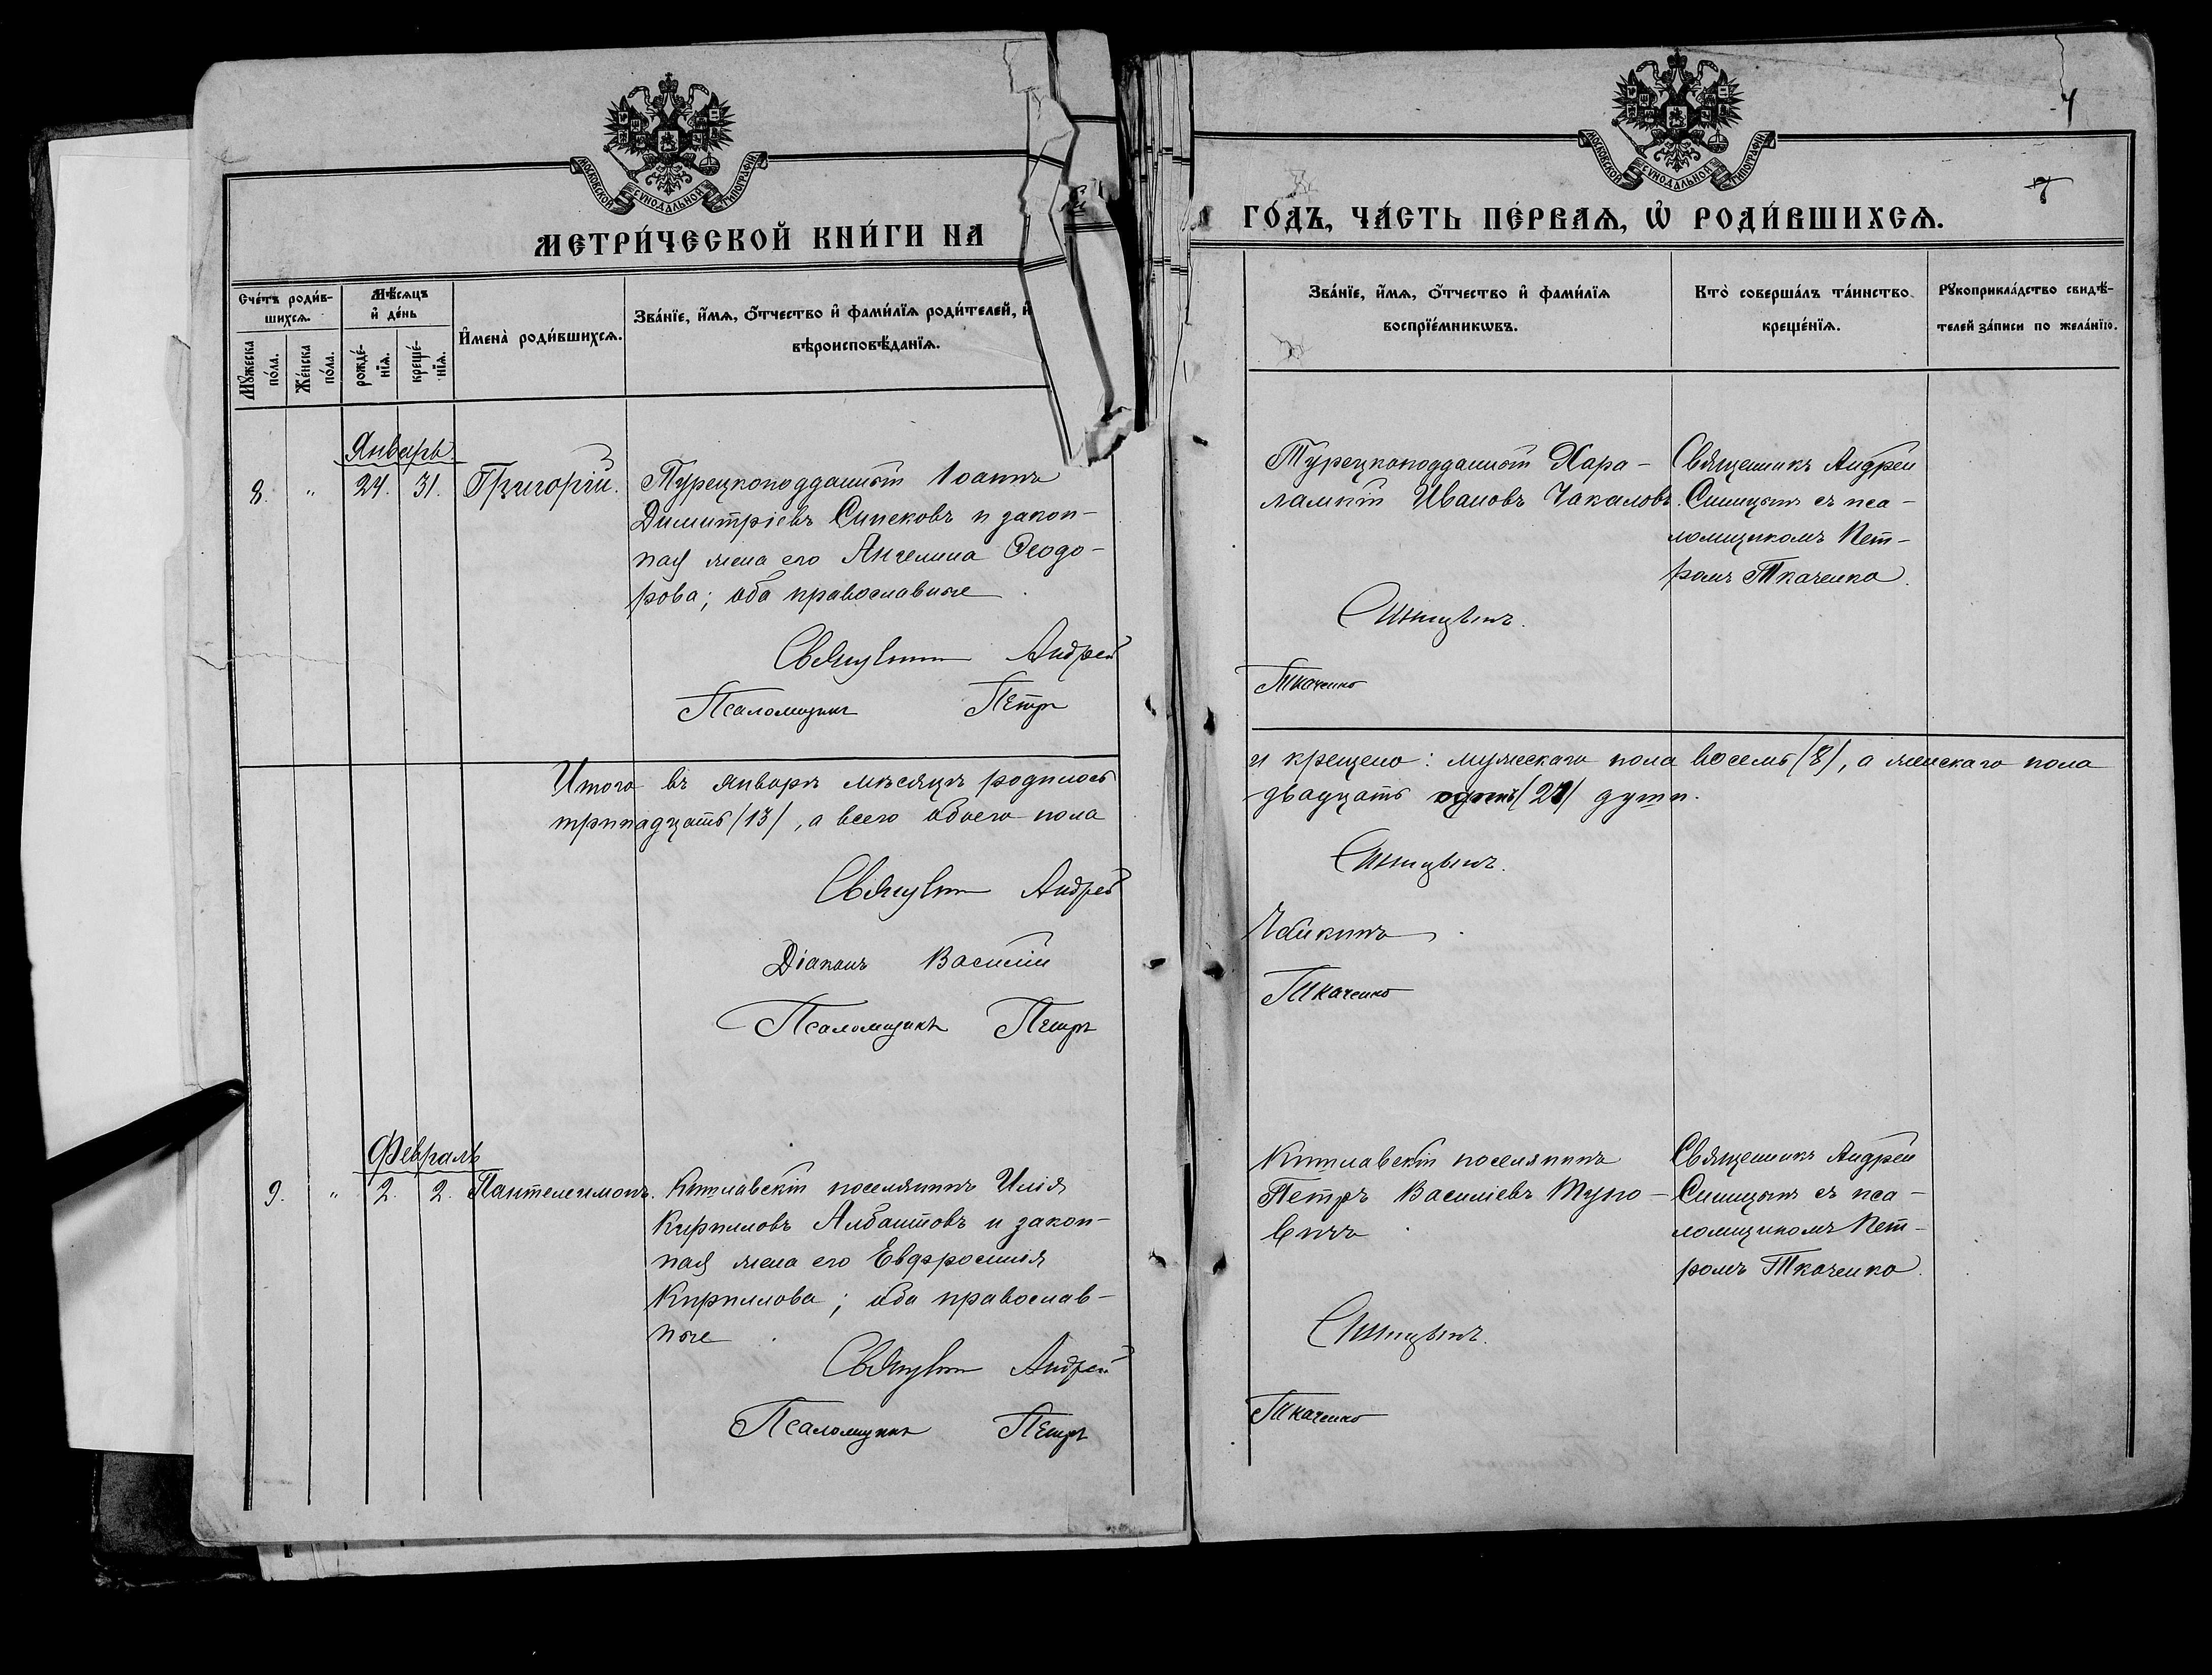 МОСКОВСКОЙ СУНОДАЛЬНОЙ ТИПОГРАФІИ
МЕТРИ́ЧЕСКОЙ КНИ́ГИ НА
Сче́тъ роди́в-
шихсѧ.
Мѣ́сѧцъ
и҆ де́нь
Мꙋ́жеска
по́ла.
Же́нска
по́ла.
рожде́-
нїѧ.
креще́-
нїѧ.
И҆мена̀ роди́вшихсѧ.
Зва́нїе, и҆́мѧ, ѻ҆́тчество и҆ фами́лїѧ роди́телей, и҆
вѣроисповѣ́данїѧ.
Январь.
8. " 24. 31. Григорій.
Турецкоподданный Іоаннъ
Димитріевъ Синековъ и закон-
ная жена его Ангелина Ѳеодо-
рова; оба православные.
Священникъ Андрей
Псаломщикъ Петръ
Итого въ январѣ мѣсяцѣ родилось
тринадцать /13/, а всего обоего пола
Священникъ Андрей
Діаконъ Василій
Псаломщикъ Петръ
Февраль
9. " 2. 2. Пантелеимонъ.
Китлавскій поселянинъ Илія
Кирилловъ Албантовъ и закон-
ная жена его Евфросинія
Кириллова; оба православ-
ные.
Священникъ Андрей
Псаломщикъ Петръ
МОСКОВСКОЙ СУНОДАЛЬНОЙ ТИПОГРАФІИ
7
ГО́ДЪ, ЧА́СТЬ ПЕ́РВАѦ, Ѡ҆ РОДИ́ВШИХСѦ.
Зва́нїе, и҆́мѧ, ѻ҆́тчество и҆ фами́лїѧ
воспрїе́мникѡвъ.
Кто̀ соверша́лъ та́инство
креще́нїѧ.
Рꙋкоприкла́дство свидѣ́-
телей за́писи по жела́нїю.
Турецкоподданный Хара-
лампій Ивановъ Чакаловъ.
Священникъ Андрей
Синицынъ съ пса-
ломщикомъ Пет-
ромъ Ткаченко.
Синицынъ.
Ткаченко
и крещено: мужескаго пола восемь /8/, а женскаго пола
двадцать одинъ /21/ души.
Синицынъ.
Чайкинъ.
Ткаченко
Китлавскій поселянинъ
Петръ Василіевъ Тупо-
вичъ
Священникъ Андрей
Синицынъ съ пса-
ломщикомъ Пет-
ромъ Ткаченко.
Синицынъ.
Ткаченко